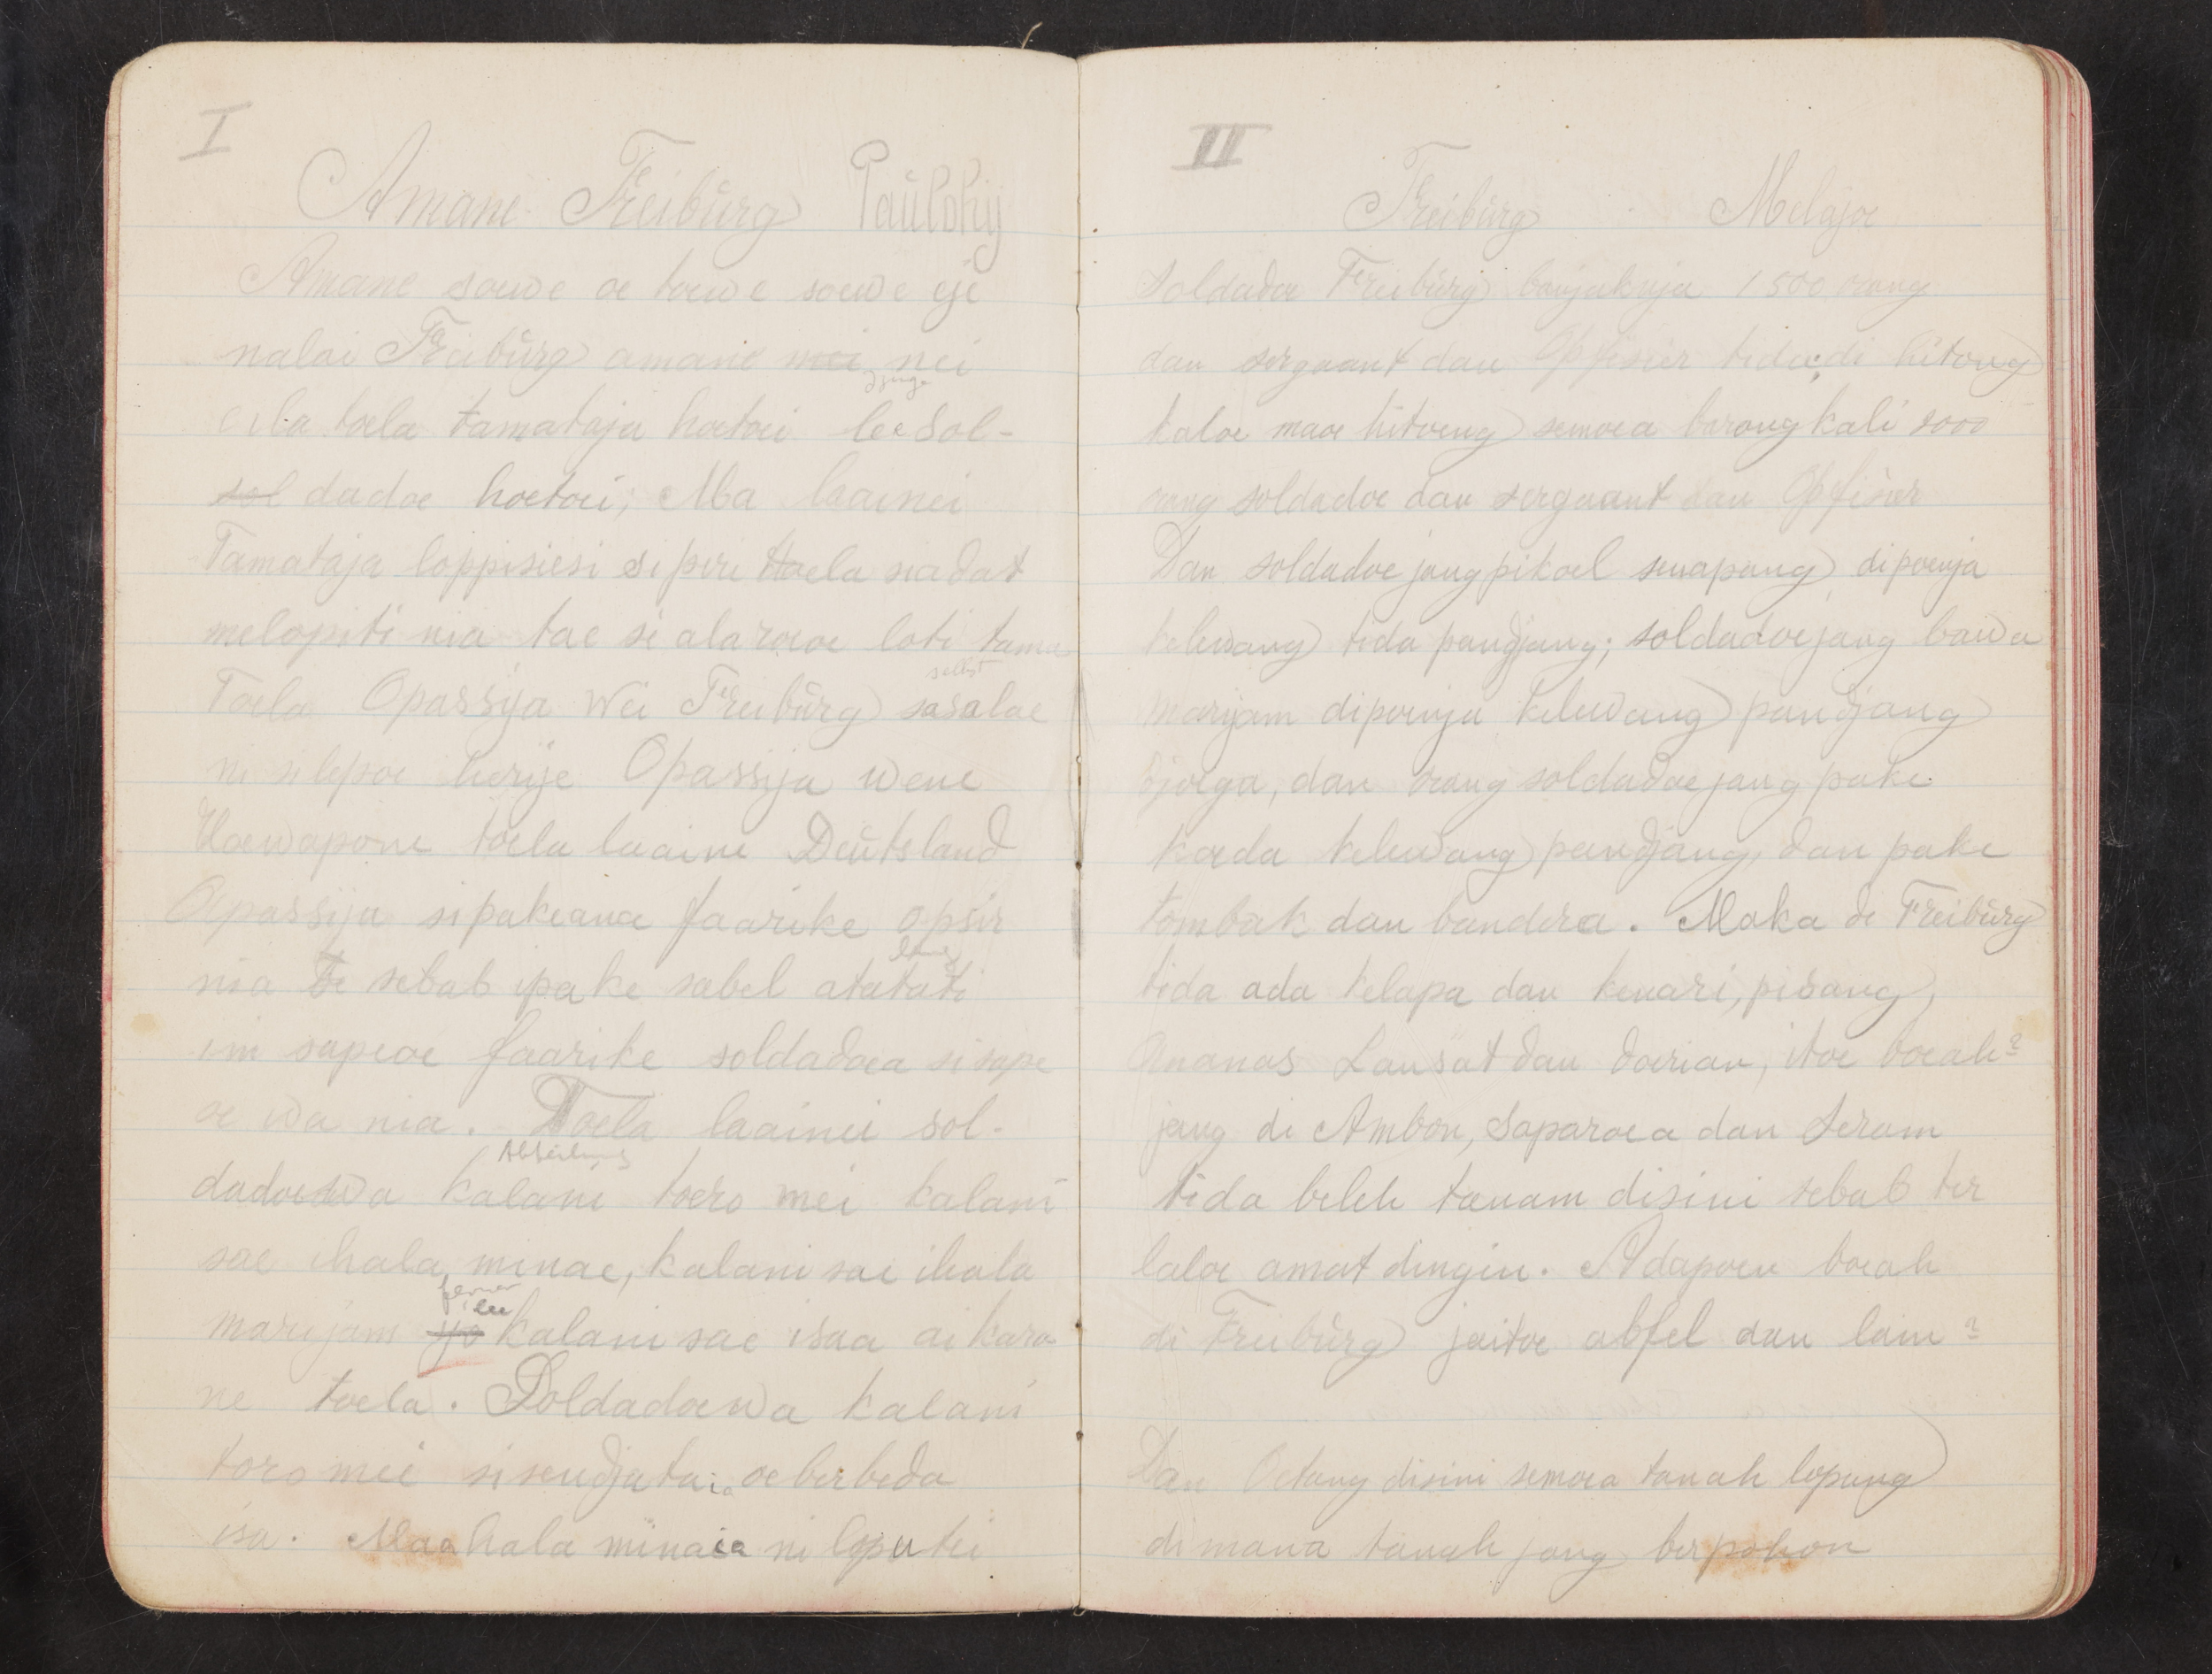 I
Amane Freibŭrg Paŭlohy
Amane soewe oe toewe soewe eje
nalai Freibŭrg amane mei nei
djuga
eila toela tamataja hoetoei lee sol-
sol dadoe hoetoei; Ma laainei
Tamataja loppisiesi si peri toela siadat
melopiti nia tae si alaroeoe loti tama
selbst
Toela Opassija wei Freibŭrg sasalae
ni silepoe herije Opassija wene
Uoewapone toela laaine Deŭtsland
Opassija sipakeanae faarike opsir
nia te sebab ipake sabel atatati
im sapeoe faarike soldadoea si sape
oe wa nia. Toela laainei sol-
Abteilung
dadoewa kalani toero mei kalani
sae ihala minae, kalani sai ihala
ferner
ilee
marijam kalani sae isaa ai kara
ne toela. Soldadoewa kalani
toro mei si sendjata ia oe berbeda
isa. Maahala minaea ni loputei
II
Freibŭrg Melajoe
Soldadoe Freibŭrg banjaknja 1500 orang
dan sergaant dan Opfisier tida di hitong
kaloe maoe hitoeng semoea barangkali 2000
orang soldadoe dan sergaant dan Opfisier
Dan soldadoe jang pikoel senapang dipoenja
kelewang tida pandjang; soldadoe jang bawa
marijam dipoenja kelewang pandjang
djoega, dan orang soldadoe jang pake
koeda kelewang pandjang, dan pake
tombak dan bandera. Maka di Freibŭrg
tida ada kelapa dan kenari, pisang,
Ananas Lansat dan doerian, itoe boeah2
jang di Ambon, Saparoea dan Seram
tida beleh tanam disini sebab ter
laloe amat dingin. Adapoen boeah
di Freibŭrg jaitoe abfel dan lain2
Dan Oetang disini semoea tanah lopang
di mana tanah jang berpohon